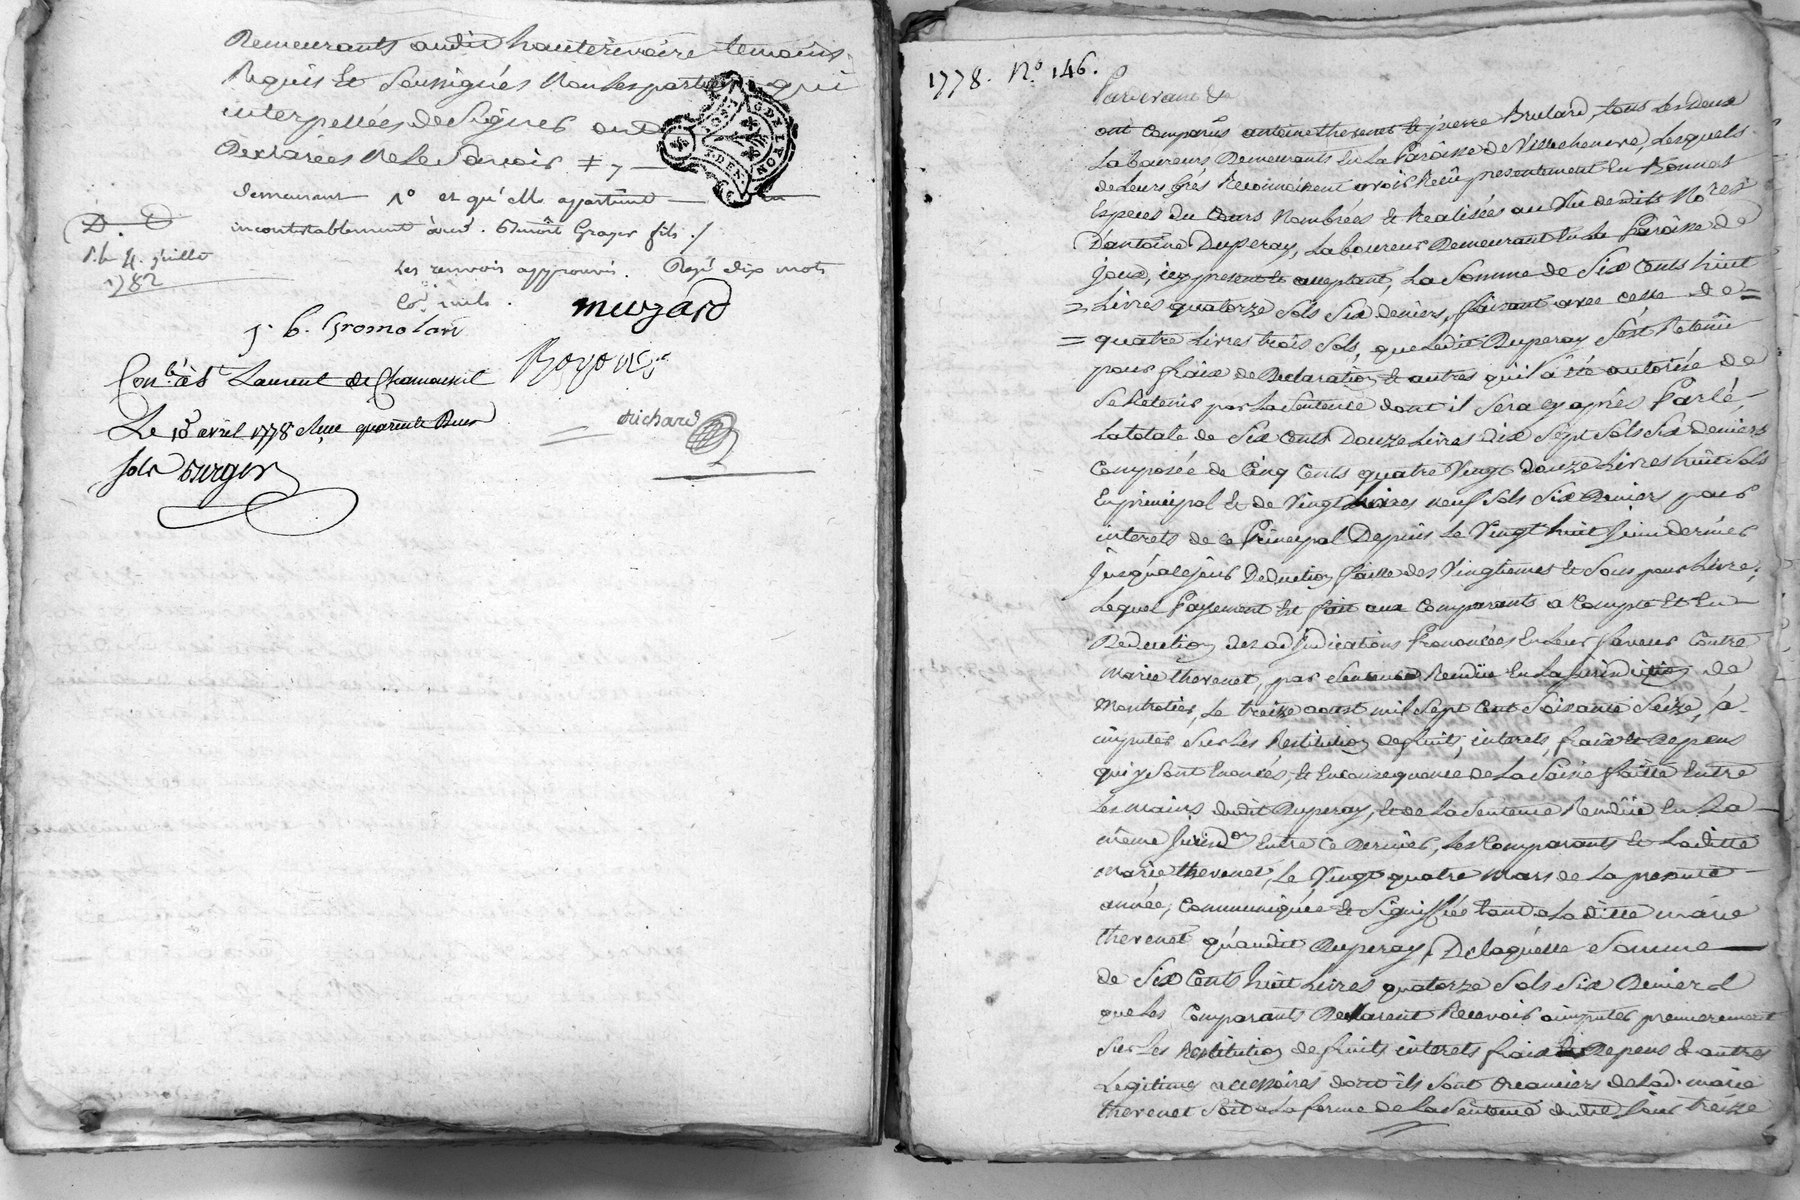 Demeurants audit hauterivoire temoins
Requis Et Soussignés Non Les parties qui
interpellées de Signer ont
Declarées Ne Le Savoir ≠ 7
demeurant 1º et qu'elle appartient
incontestablement aud. Benoît Grager fils ./
D. D
4. juillet
1782
Les renvois approuvés. Rayé dix mots
muzard
j. b. Gromolard
Con.lé à St Laurent de Chamousset
Le 13 avril 1778 Reçu quarente Deux
sols Durger
Richard
1778. Nº 146.
Pardevant &a
ont comparûs antoine thevenet Et pierre Brulard, tous Les Deux
Laboureurs Demeurants En La Paroisse de Villechenève, Lesquels
de Leurs Grés Reconnoissent avoir Reçû presentement En Bonnes
Especes du Cours Nombrées & Realisées au Vû desdits No.res
D'antoine Duperay, Laboureur Demeurant En La Paroisse de
Joux, icy present Et acceptant, La Somme de Six Cents huit
= Livres quatorze Sols Six deniers, faisant avec celle de =
= quatre Livres trois Sols, que Ledit Duperay S'est Retenüe
pour fraix de Declaration & autres qu'il a été autorisé de
Se Retenir par La Sentence dont il Sera cy après Parlé,
La totale de Six cents Douze Livres Dix Sept Sols Six Deniers
Composée de Cinq Cents quatre Vingt douze Livres huit Sols
En principal Et de Vingt Livres neuf Sols Six Deniers pour
interets de ce Principal Depuis Le Vingt huit Juin dernier
Jusqu'à ce Jour Deduction faitte des Vingtiemes Et Sous pour Livre;
Lequel Payement Est fait aux Comparants a Compte Et En
Deduction des adjudications Prononcées En Leur faveur Contre
Marie thevenet, par Sentence Rendüe En La Jurisdiction de
Montrotier, Le treize aoust mil Sept Cent Soixante Seize, à
imputer Sur Les Restitution de fruits, interets, fraix Et Depens
qui y Sont Enoncés, Et En consequence de La Saisie faitte Entre
Les mains dudit Duperay, Et de La Sentence Rendüe En La
même Jurisd.on Entre Ce Dernier, Les Comparants Et Laditte
Marie thevenet, Le Vingt quatre Mars de La presente
année, Communiquée Et Signiffiée tant a Laditte marie
thevenet qu'audit Duperay, De laquelle Somme
de Six Cents huit Livres quatorze Sols Six Deniers
que Les Comparants Declarent Recevoir à imputer premierement
Sur Les Restitution de fruits interets fraix Et Depens & autres
Legitimes accessoires dont ils Sont Creanciers de Lad. marie
thevenet Soit a La forme de La Sentence dudit Jour treize